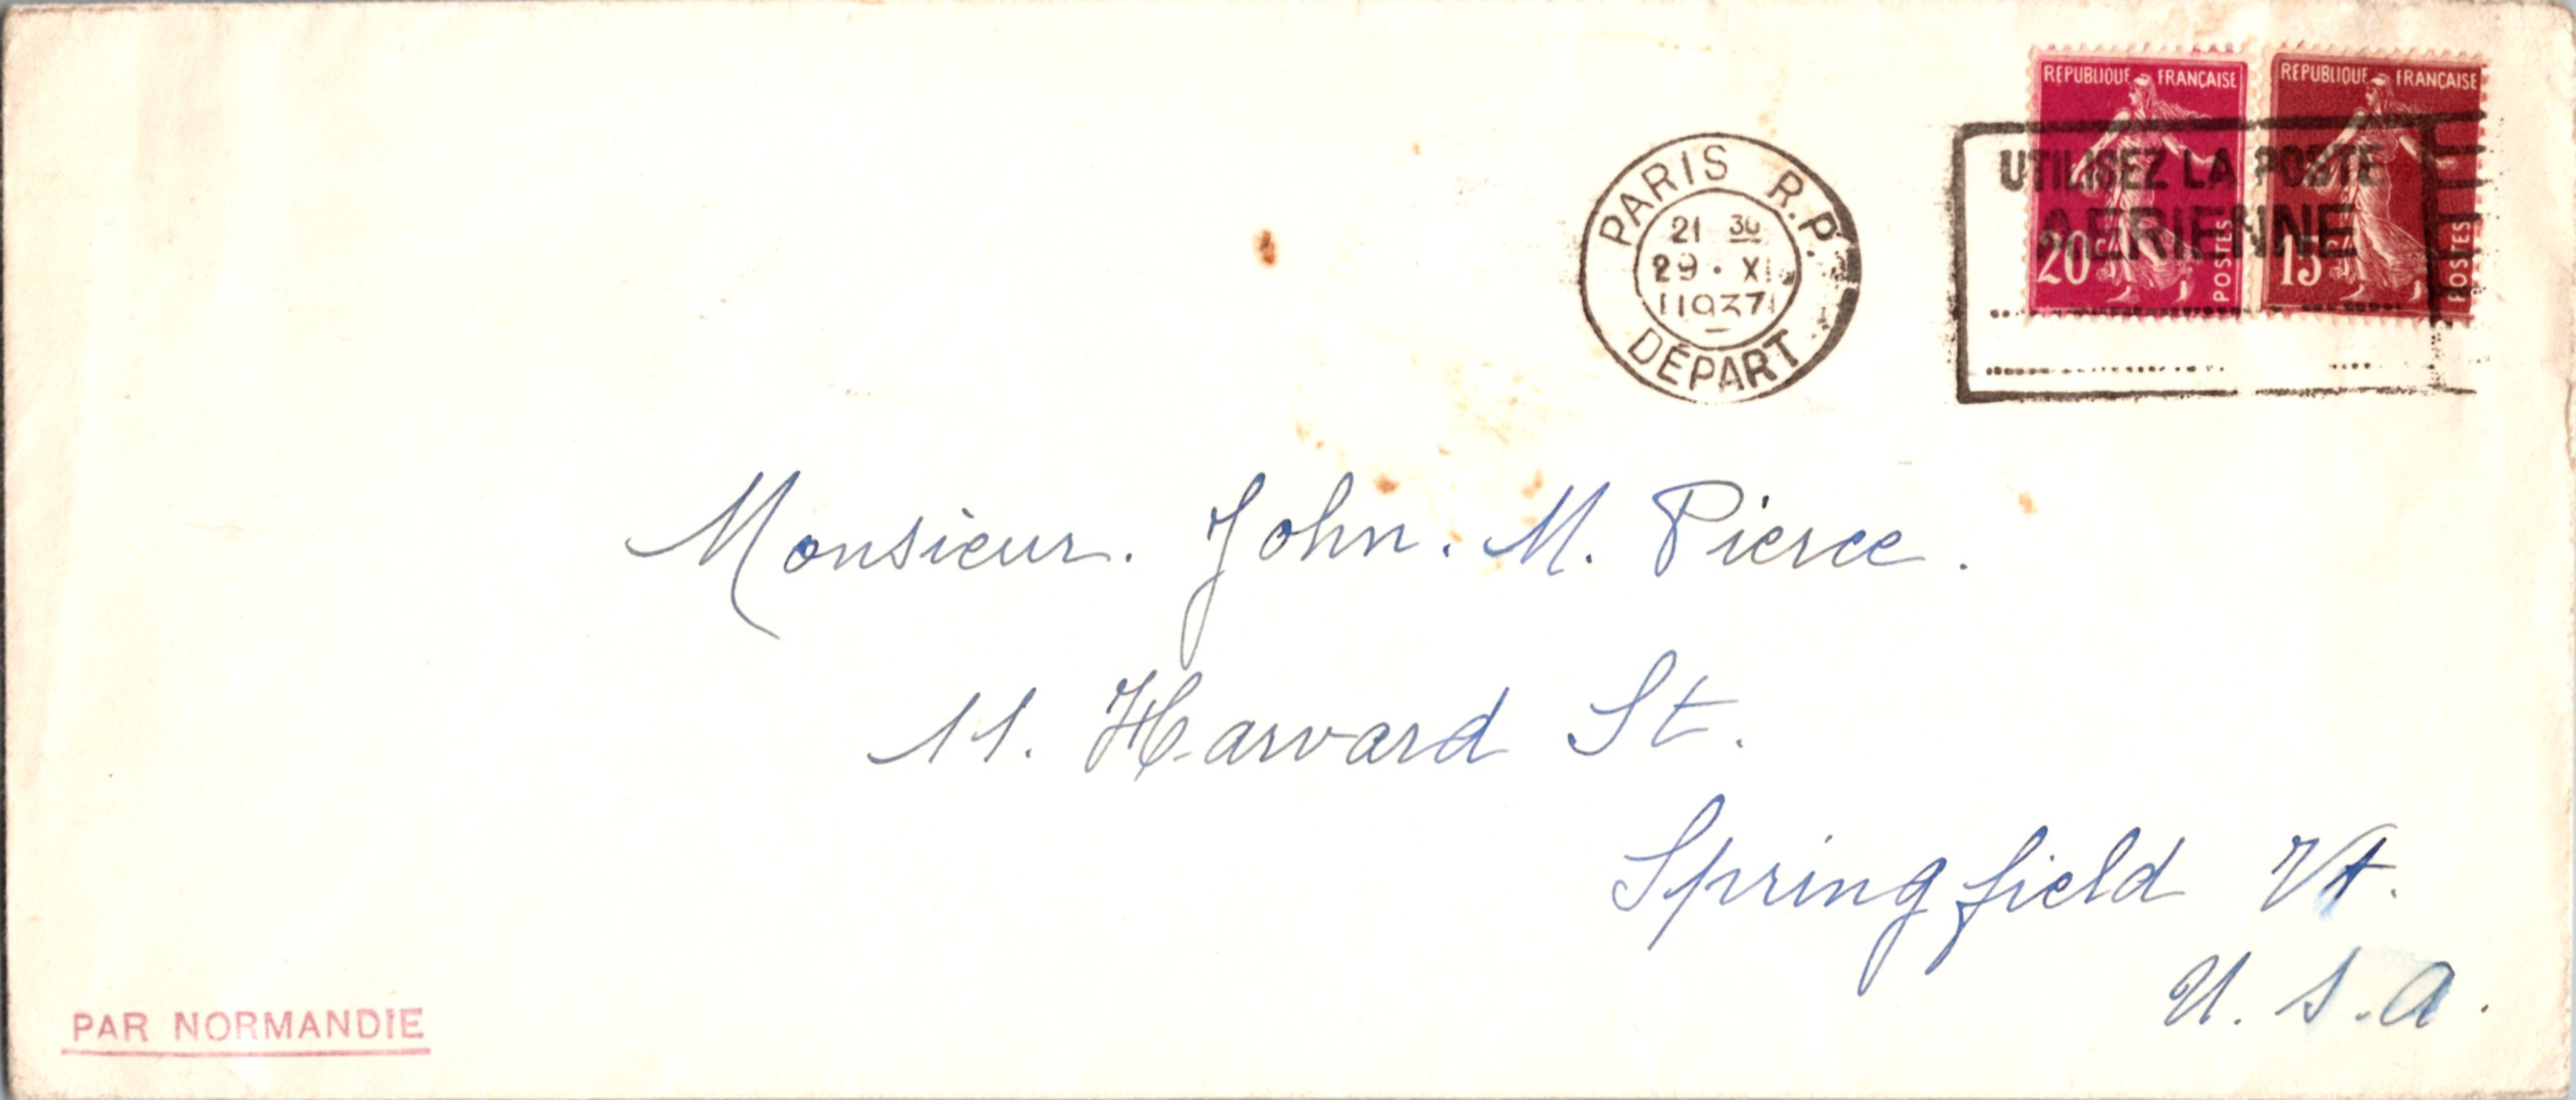 REPUBLIQUE FRANÇAISE
20c POSTES
REPUBLIQUE FRANÇAISE
15c POSTES
PARIS R.P.
21 30
29 • XI
1937
DÉPART
UTILISEZ LA POSTE
AERIENNE
Monsieur. John. M. Pierce.
11. Harvard St.
Springfield Vt.
U.S.A.
PAR NORMANDIE